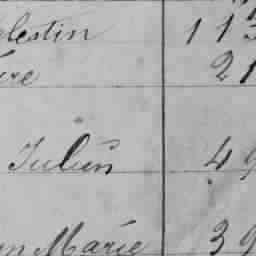 elestin 11
ire 21
Julien 49
an Marie 39